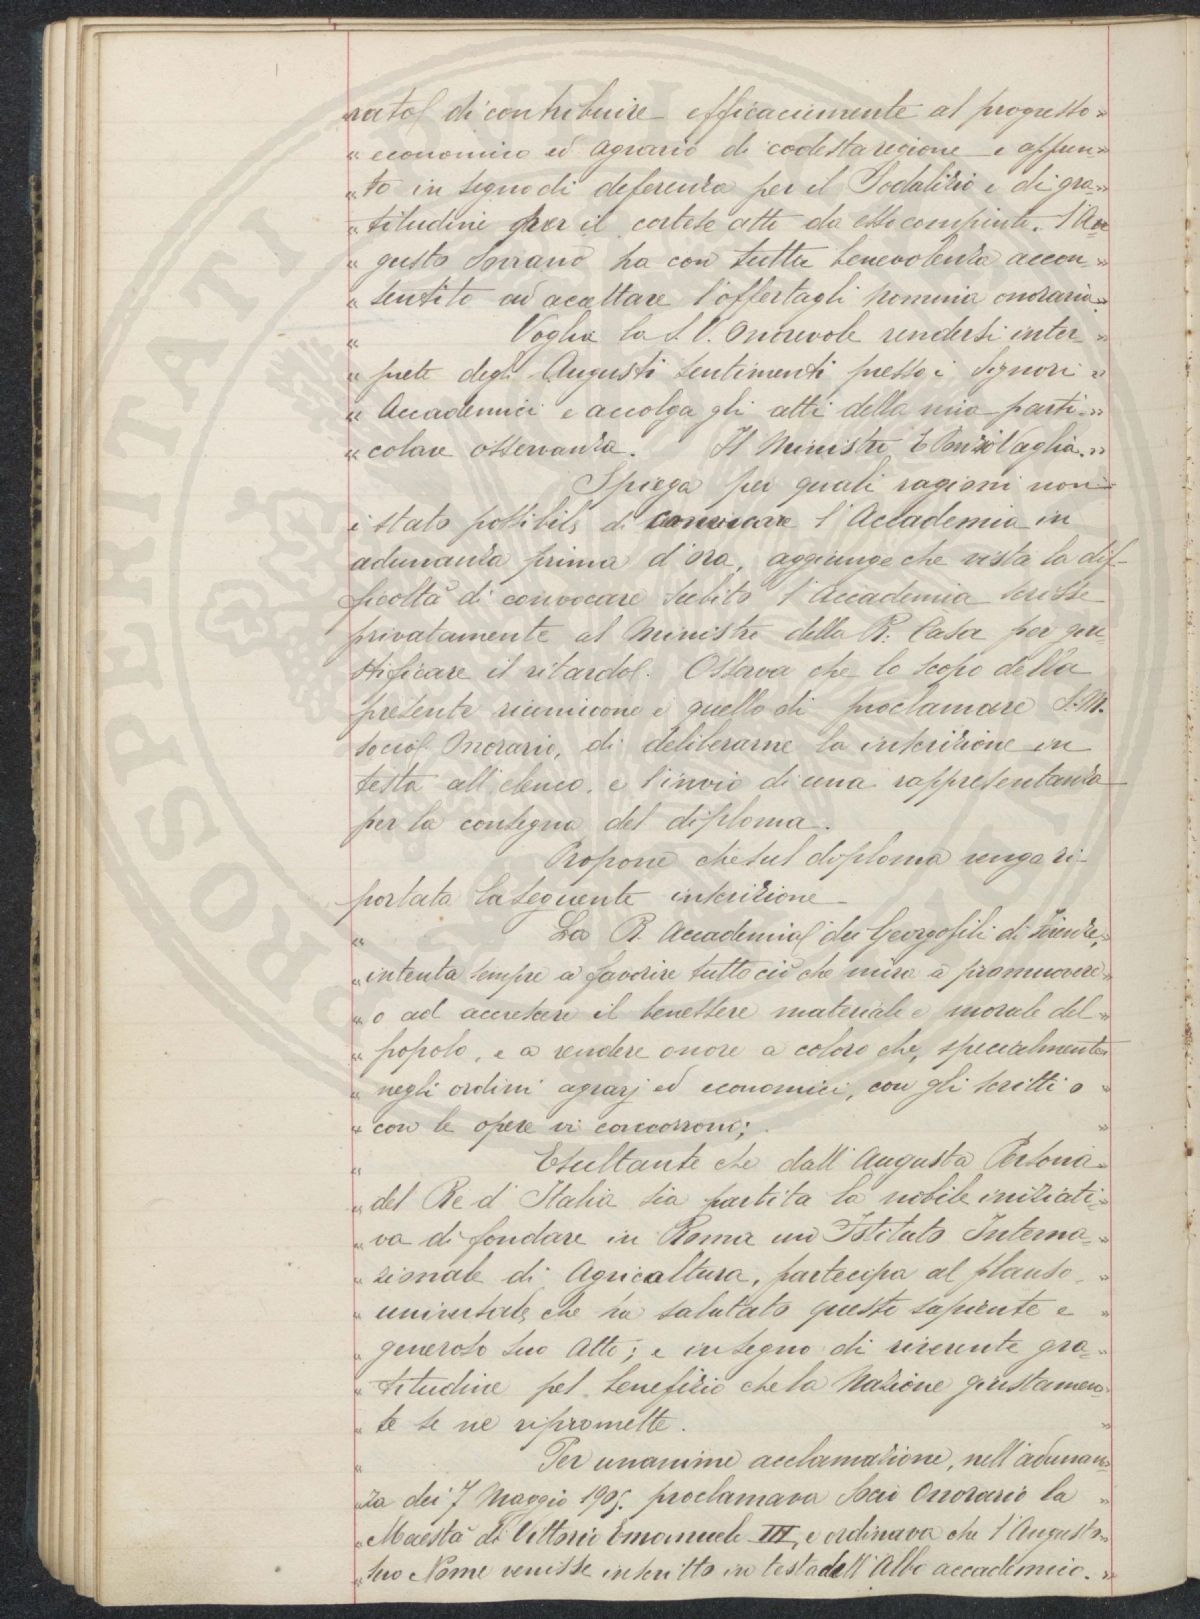 rato di contribuire efficacemente al progresso »
« economico ed agrario di codesta regione e appun- »
« to in segno di deferenza per il Sodalizio e di gra- »
« titudine per il cortese atto da esso compiuto, l'Au-
« gusto Sovrano ha con tutta benevolenza accon- »
« sentito ad accettare l'offertagli nomina onoraria. »
« Voglia la S. V. Onorevole rendersi inter- »
« prete degli Augusti sentimenti presso i Signori »
« Accademici e accolga gli atti della mia parti- »
« colare osservanza. Il Ministro E Ponzio Vaglia. »
Spiega per quali ragioni non
è stato possibile di convocare l'Accademia in
adunanza prima d'ora, aggiunge che vista la dif-
ficoltà di convocare subito l'Accademia scrisse
privatamente al Ministro della R. Casa per giu-
stificare il ritardo. Osserva che lo scopo della
presente riunione è quello di proclamare S. M.
socio Onorario, di deliberarne la inscrizione in
testa all'elenco, e l'invio di una rappresentanza
per la consegna del diploma.
Propone che sul diploma venga ri-
portata la seguente inscrizione
« La R. Accademia dei Georgofili di Firenze, »
« intenta sempre a favorire tutto ciò che mira a promuovere »
« o ad accrescere il benessere materiale e morale del »
« popolo, e a rendere onore a coloro che, specialmente »
« negli ordini agrarj ed economici, con gli scritti o »
« con le opere vi concorrono; »
« Esultante che dall'Augusta Persona »
« del Re d'Italia sia partita la nobile iniziati- »
« va di fondare in Roma un Istituto Interna- »
« zionale di Agricoltura, partecipa al plauso »
« universale che ha salutato questo sapiente e »
« generoso Suo Atto; e in segno di riverente gra- »
« titudine pel benefizio che la Nazione giustamen- »
« te se ne ripromette. »
« Per unanime acclamazione, nell'adunan- »
« za dei 7 Maggio 1905. proclamava Socio Onorario la »
« Maestà di Vittorio Emanuele III, e ordinava che l'Augusto »
« Suo Nome venisse inscritto in testa dell'Albo accademico. »
PROSPERITATI